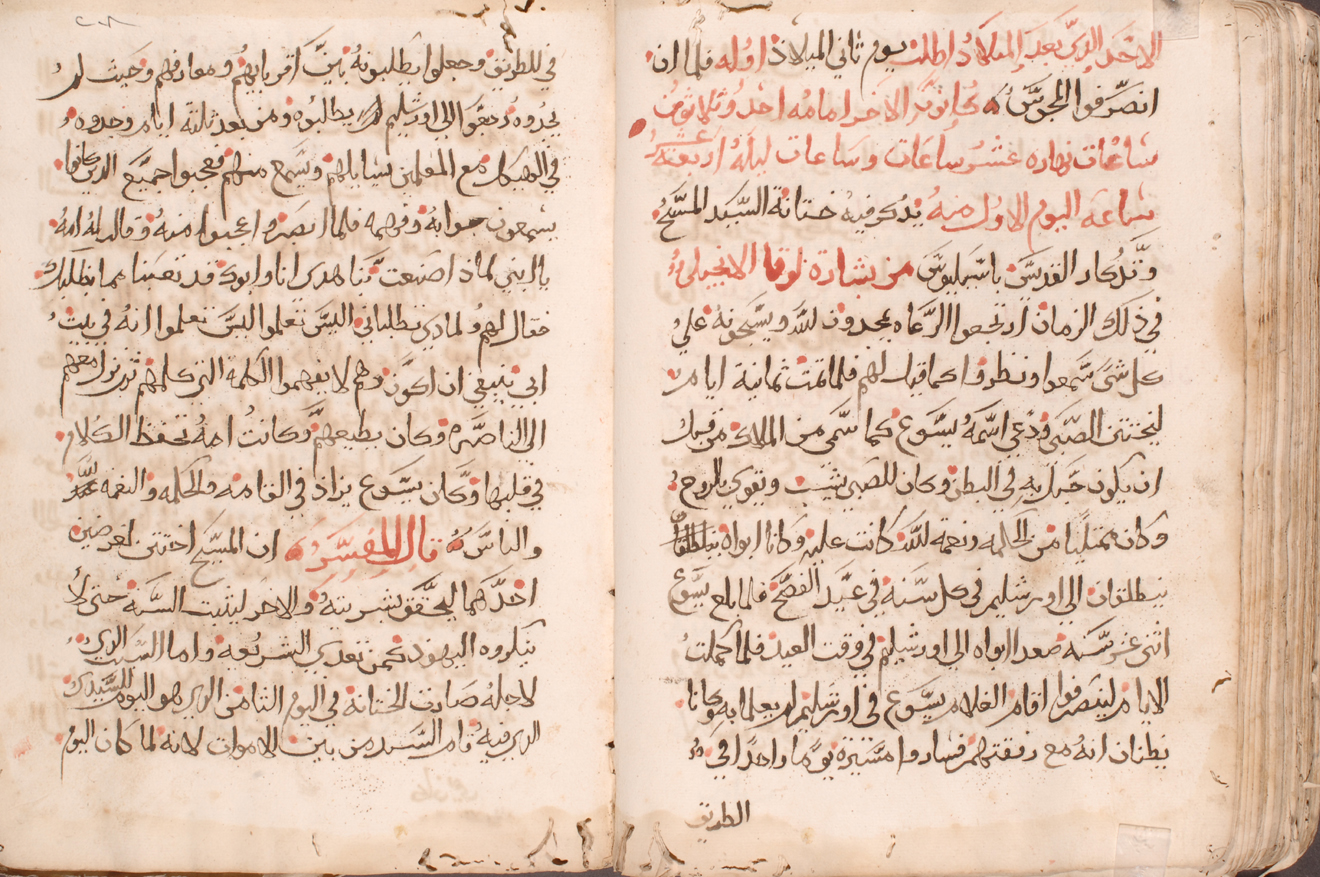 الاحد الذي بعد الميلاد اطلب يوم ثاني الميلاد اوله فلما ان
انصرفوا المجوس كانون الاخر ايامه احد وثلاثون
ساعات نهاره عشر ساعات وساعات ليله اربعة عشر
ساعه اليوم الاول منه يذكر فيه ختانة السيد المسيح
وتذكار القديس باسيليوس من بشارة لوقا الانجيلي
في ذلك الزمان ارتجعوا الرعاه يمجدون لله ويسبحونه علي
كل شي سمعوا ونظروا كما قيل لهم فلما تمت ثمانية ايام
ليختتن الصبي ودعي اسمه يسوع كما سمي من الملاك من قبل
ان يكون حبل به في البطن وكان للصبي يثبت ويتقوي بالروح
وكان ممتليا من الحكمه ونعمة لله كانت عليه وكانا ابواه
ينطلقان الي اورشليم في كل سنة في عيد الفصح فلما بلغ يسوع
اثني عشر سنه صعد ابواه الي اورشليم في وقت العيد فلما كملت
الايام لينصرفوا اقام الغلام يسوع في اورشليم لم يعلما به وكانا
يظنان انه مع رفقتهم فساروا مسيرة يوما واحدا في
الطريق
في للطريق وجعلوا يطلبونه بين اقربايهم ومعارفهم وحيث لم
يجدوه رجعوا الي اورشليم يطلبوه ومن بعد ثلثة ايام وجدوه
في الهيكل مع المعلمين يسايلهم ويسمع منهم فعجبوا جميع الذين كانوا
يسمعون جوابه وفهمه فلما ابصروه اعجبوا منه وقالت له امه
يا ابني لماذا صنعت بنا هدي انا وابوك قد تعبنا بما نطلبك
فقال لهم ولمادي تطلباني اليس تعلموا اليس تعلموا انه في بيت
ابي ينبغي ان اكون وهم لا يفهموا الكلمة التي كلمهم ثم نزل معهم
الي الناصره وكان يطيعهم وكانت امه تحفظ الكلام
في قلبها وكان يسوع يزاد في القامه والحكمه والنعمه لله
والناس قال المفسر ان المسيح اختتن لغرضين
احدهما ليحقق بشريته والاخر ليثبت السنة حتى لا
ينكروه اليهود كمن تعدي الشريعه واما السبب الذي
لاجله صارت الختانة في اليوم الثامن الذي هو اليوم للسيدي
الذي فيه قام السيد من بين الاموات لانه لما كان اليوم